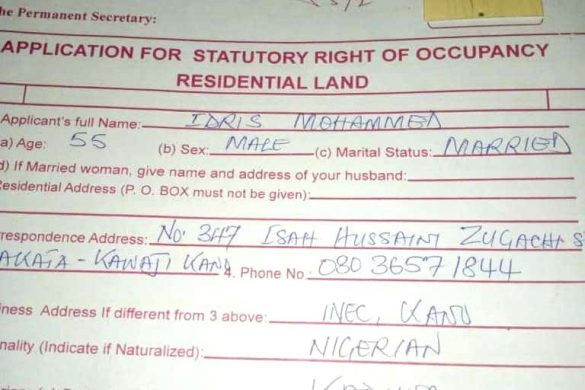 he Permanent Secretary:
APPLICATION FOR STATUTORY RIGHT OF OCCUPANCY
RESIDENTIAL LAND
Applicant's full Name: IDRIS MOHAMMED
a) Age: 55 (b) Sex: MALE (c) Marital Status: MARRIED
d) If Married woman, give name and address of your husband:
esidential Address (P. O. BOX must not be given):
rrespondence Address: No. 347 ISAH HUSSAINI ZUGACHI S
AKATA - KAWAJI KANO 4. Phone No.: 080 3657 1844
iness Address If different from 3 above: INEC, KANO
nality (Indicate if Naturalized): NIGERIAN